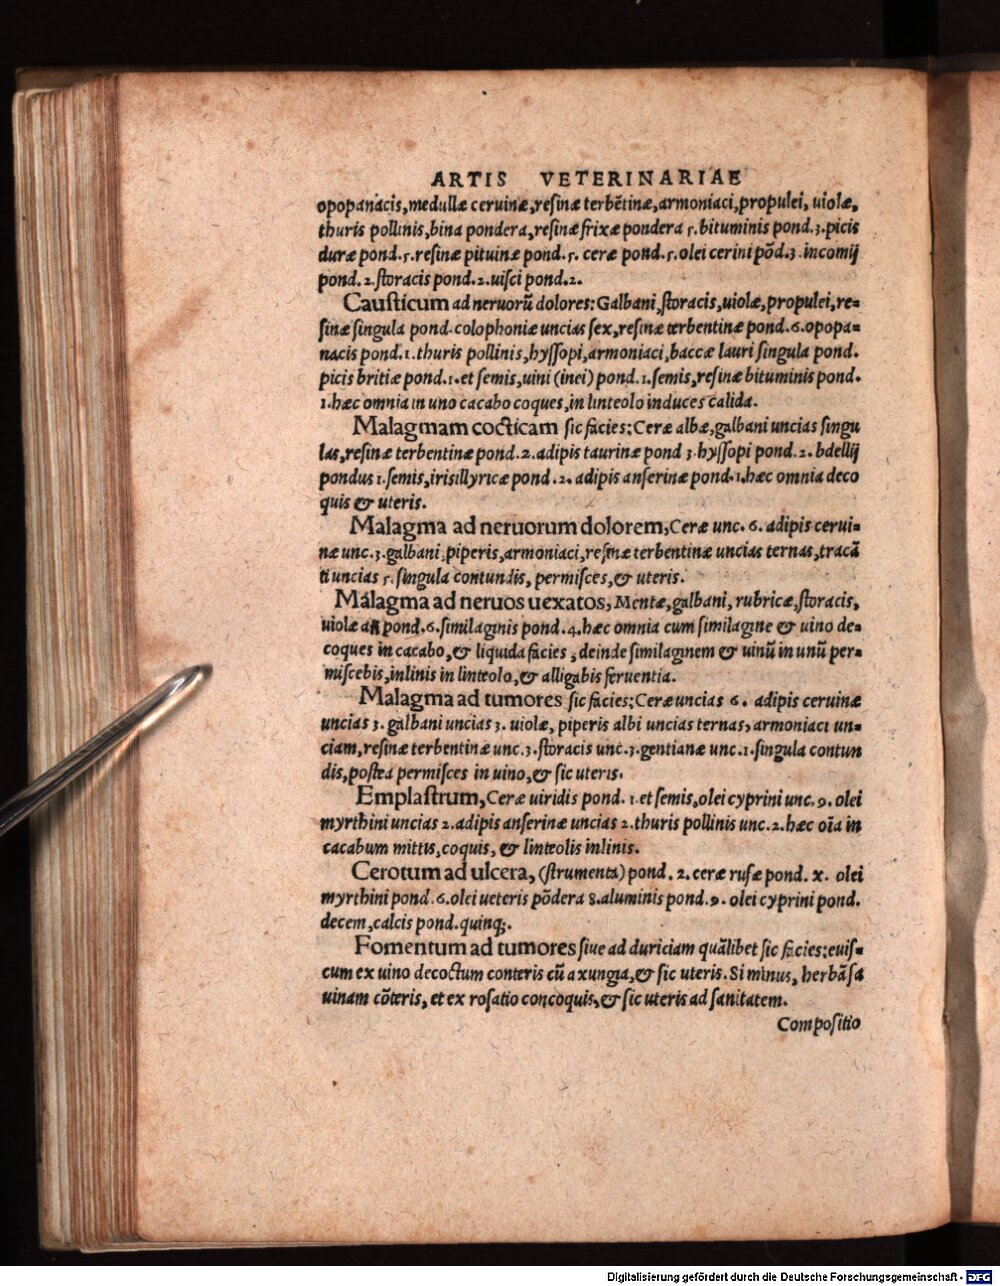 ARTIS VETERINARIAE
opopanacis,medullæ ceruinæ,reſinæ terbētinæ,armoniaci,propulei, uiolæ,
thuris pollinis,bina pondera,reſinæ frixæ pondera 5.bituminis pond.3.picis
duræ pond.5.reſinæ pituinæ pond.5. ceræ pond.5.olei cerini põd.3.incomij
pond.2.ſtoracis pond.2.uiſci pond.2.
Cauſticum ad neruorũ dolores:Galbani,ſtoracis,uiolæ,propulei,re=
ſinæ ſingula pond.colophoniæ uncias ſex,reſinæ terbentinæ pond.6.opopa=
nacis pond.1.thuris pollinis,hyſſopi,armoniaci,baccæ lauri ſingula pond.
picis britiæ pond.1.et ſemis,uini (inei) pond.1.ſemis,reſinæ bituminis pond.
1.hæc omnia in uno cacabo coques,in linteolo induces calida.
Malagmam cocticam ſic facies:Ceræ albæ,galbani uncias ſingu
las,reſinæ terbentinæ pond.2.adipis taurinæ pond 3.hyſſopi pond.2.bdellij
pondus 1.ſemis,irisillyricæ pond.2.adipis anſerinæ pond.1.hæc omnia deco
quis & uteris.
Malagma ad neruorum dolorem,Ceræ unc.6.adipis cerui=
næ unc.3.galbani,piperis,armoniaci,reſinæ terbentinæ uncias ternas,tracã
ti uncias 5.ſingula contundis, permiſces,& uteris.
Malagma ad neruos uexatos, Mentæ,galbani, rubricæ,ſtoracis,
uiolæ añ pond.6.ſimilaginis pond.4.hæc omnia cum ſimilagine & uino de=
coques in cacabo,& liquida facies,deinde ſimilaginem & uinũ in unũ per=
miſcebis,inlinis in linteolo,& alligabis feruentia.
Malagma ad tumores ſic facies:Ceræ uncias 6. adipis ceruinæ
uncias 3. galbani uncias 3. uiolæ, piperis albi uncias ternas,armoniaci un=
ciam,reſinæ terbentinæ unc.3.ſtoracis unc.3.gentianæ unc.1.ſingula contun
dis,poſtea permiſces in uino,& ſic uteris.
Emplaſtrum,Ceræ uiridis pond. 1.et ſemis,olei cyprini unc.9.olei
myrthini uncias 2.adipis anſerinæ uncias 2.thuris pollinis unc.2.hæc oĩa in
cacabum mittis,coquis, & linteolis inlinis.
Cerotum ad ulcera, (ſtrumenta) pond. 2.ceræ rufæ pond. x. olei
myrthini pond.6.olei ueteris põdera 8.aluminis pond.9. olei cyprini pond.
decem,calcis pond.quinq;.
Fomentum ad tumores ſiue ad duriciam quãlibet ſic facies:euiſ=
cum ex uino decoctum conteris cũ axungia,& ſic uteris. Si minus, herbã ſa
uinam cõteris, et ex roſatio concoquis,& ſic uteris ad ſanitatem.
Compoſitio
Digitalisierung gefördert durch die Deutsche Forschungsgemeinschaft - DFG